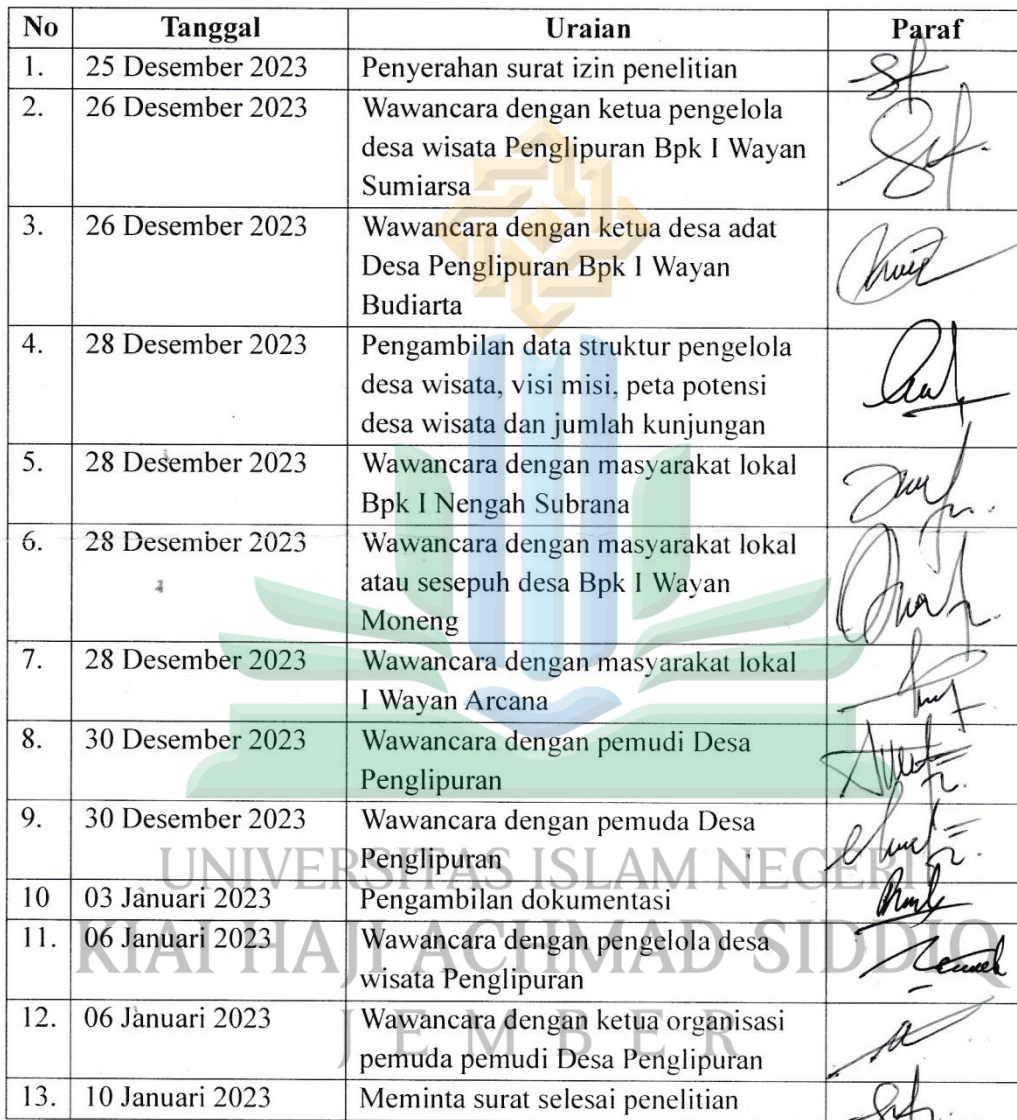 No Tanggal Uraian Paraf
1. 25 Desember 2023 Penyerahan surat izin penelitian
2. 26 Desember 2023 Wawancara dengan ketua pengelola
desa wisata Penglipuran Bpk I Wayan
Sumiarsa
3. 26 Desember 2023 Wawancara dengan ketua desa adat
Desa Penglipuran Bpk I Wayan
Budiarta
4. 28 Desember 2023 Pengambilan data struktur pengelola
desa wisata, visi misi, peta potensi
desa wisata dan jumlah kunjungan
5. 28 Desember 2023 Wawancara dengan masyarakat lokal
Bpk I Nengah Subrana
6. 28 Desember 2023 Wawancara dengan masyarakat lokal
atau sesepuh desa Bpk I Wayan
Moneng
7. 28 Desember 2023 Wawancara dengan masyarakat lokal
I Wayan Arcana
8. 30 Desember 2023 Wawancara dengan pemudi Desa
Penglipuran
9. 30 Desember 2023 Wawancara dengan pemuda Desa
Penglipuran
UNIVERSITAS ISLAM NEGERI
10 03 Januari 2023 Pengambilan dokumentasi
11. 06 Januari 2023 Wawancara dengan pengelola desa
wisata Penglipuran
KIAI HAJI ACHMAD SIDDIQ
12. 06 Januari 2023 Wawancara dengan ketua organisasi
pemuda pemudi Desa Penglipuran
JEMBER
13. 10 Januari 2023 Meminta surat selesai penelitian